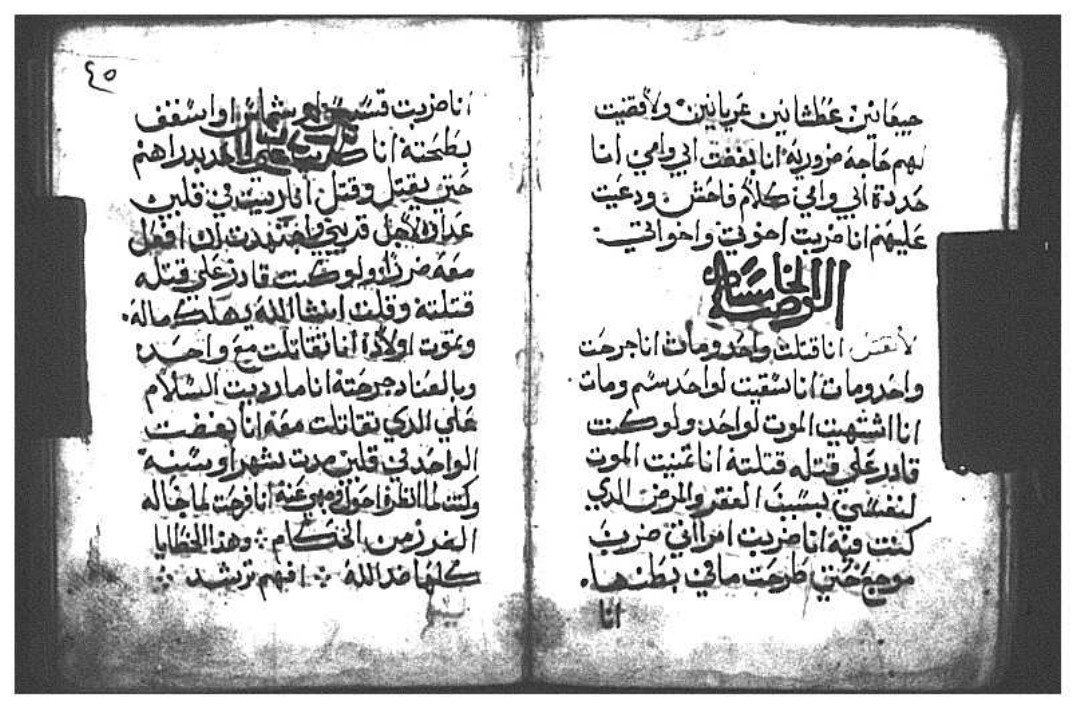 جيعانين عطشانين عريانين ولا قضيت
لهم حاجة ضرورية انا بغضت ابي وامي انا
حددة ابي وامي كلام فاحش ودعيت
عليهم انا ضربت اخوتي واخواتي
الوصية الخامسة
لا تقتل انا قتلت واحد ومات انا جرحت
واحد ومات انا سقيت لواحد سم ومات
انا اشتهيت الموت لواحد ولو كنت
قادر علي قتله قتلته انا تمنيت الموت
لنفسي بسبب الفقر والمرض الدي
كنت فيه انا ضربت امراتي ضرب
موجع حتي طرحت ما في بطنها
انا
٤٥
انا ضربت قسيس او شماس او اسقف
بطحته انا علي واحد بدراهم
حتي يقتل وقتل انا ربيت في قلبي
عداوة لاجل قريبي واجتهدت ان افعل
معه ضرر ولو كنت قادر علي قتله
قتلته وقلت انشا الله يهلك ماله
وتموت اولاده انا تقاتلت مع واحد
وبالعناد جرحته انا ما رديت السلام
علي الدي تقاتلت معه انا بغضت
الواحد في قلبي مدت شهر او سنة
وكنت لما انظره احول وجهي عنه انا فرحت لما جا له
الضرر من الحكام وهذا الخطايا
كلها ضد الله افهم ترشد